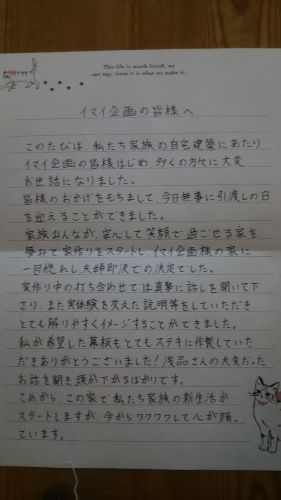 This life is worth living, we
can say, since it is what we make it.
イマイ企画の皆様へ
このたびは、私たち家族の自宅建築にあたり
イマイ企画の皆様はじめ、多くの方々に大変
お世話になりました。
皆様のおかげをもちまして、今日無事に引渡しの日
を迎えることができました。
家族みんなが、安心して笑顔で過ごせる家を
夢みて家作りをスタートし、イマイ企画様の家に
一目惚れし、夫婦即決での決定でした。
家作り中の打ち合わせでは真摯に話しを聞いて下
さり、また実体験を交えた説明等をしていただき
とても解りやすくイメージすることができました。
私が希望した幕板もとてもステキに作製していた
だきありがとうございました!浅品さんの大変だった
お話を聞き頭が下がるばかりです。
これから、この家で私たち家族の新生活が
スタートしますが、今からワクワクして心が踊っ
ています。